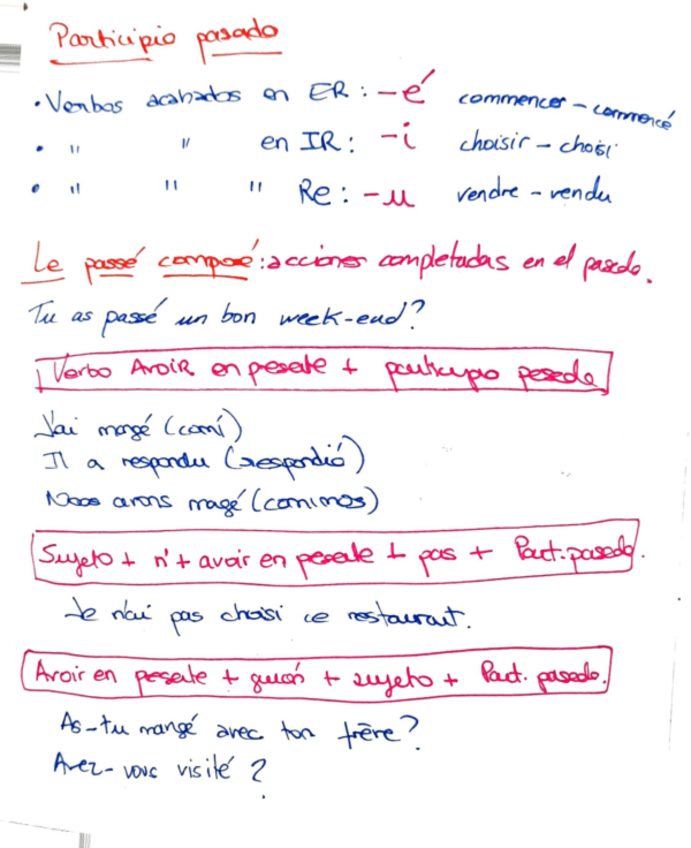 Participio pasado
• Verbos acabados en ER: -é commencer - commencé
• " " en IR: -i choisir - choisi
• " " " Re: -u vendre - vendu
Le passé composé: acciones completadas en el pasado.
Tu as passé un bon week-end?
Verbo Avoir en presente + participio pasado
J'ai mangé (comí)
Il a respondu (respondió)
Nous avons magé (comimos)
Sujeto + n' + avoir en presente + pas + Part. pasado.
Je n'ai pas choisi ce restaurant.
Avoir en presente + guión + sujeto + Part. pasado.
As-tu mangé avec ton frère?
Avez-vous visité?